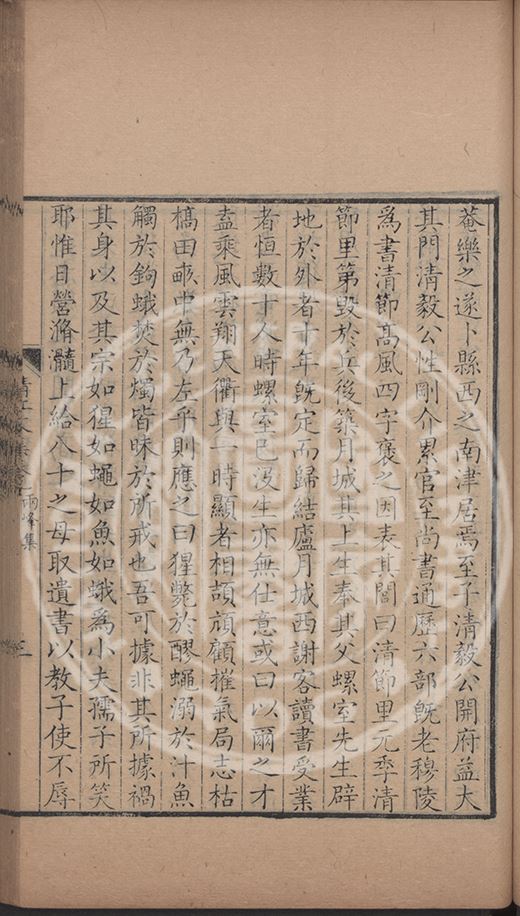 菴樂之遂卜縣西之南津居焉至子清毅公開府益大
其門清毅公性剛介累官至尚書通歷六部旣老穆陵
爲書清節髙風四字褒之因表其閭曰清節里元季清
節里第毀於兵後築月城其上生奉其父螺室先生辟
地於外者十年旣定而歸結廬月城西謝客讀書受業
者恒數十人時螺室已沒生亦無仕意或曰以爾之才
盍乘風雲翔天衢與一時顯者相頡頏顧摧氣局志枯
槁田畝中無乃左乎則應之曰猩斃於醪蠅溺於汁魚
觸於鉤蛾焚於燭皆昧於所戒也吾可據非其所據禍
其身以及其宗如猩如蠅如魚如蛾爲小夫孺子所笑
耶惟日營滫瀡上給八十之母取遺書以教子使不辱
兩峰集